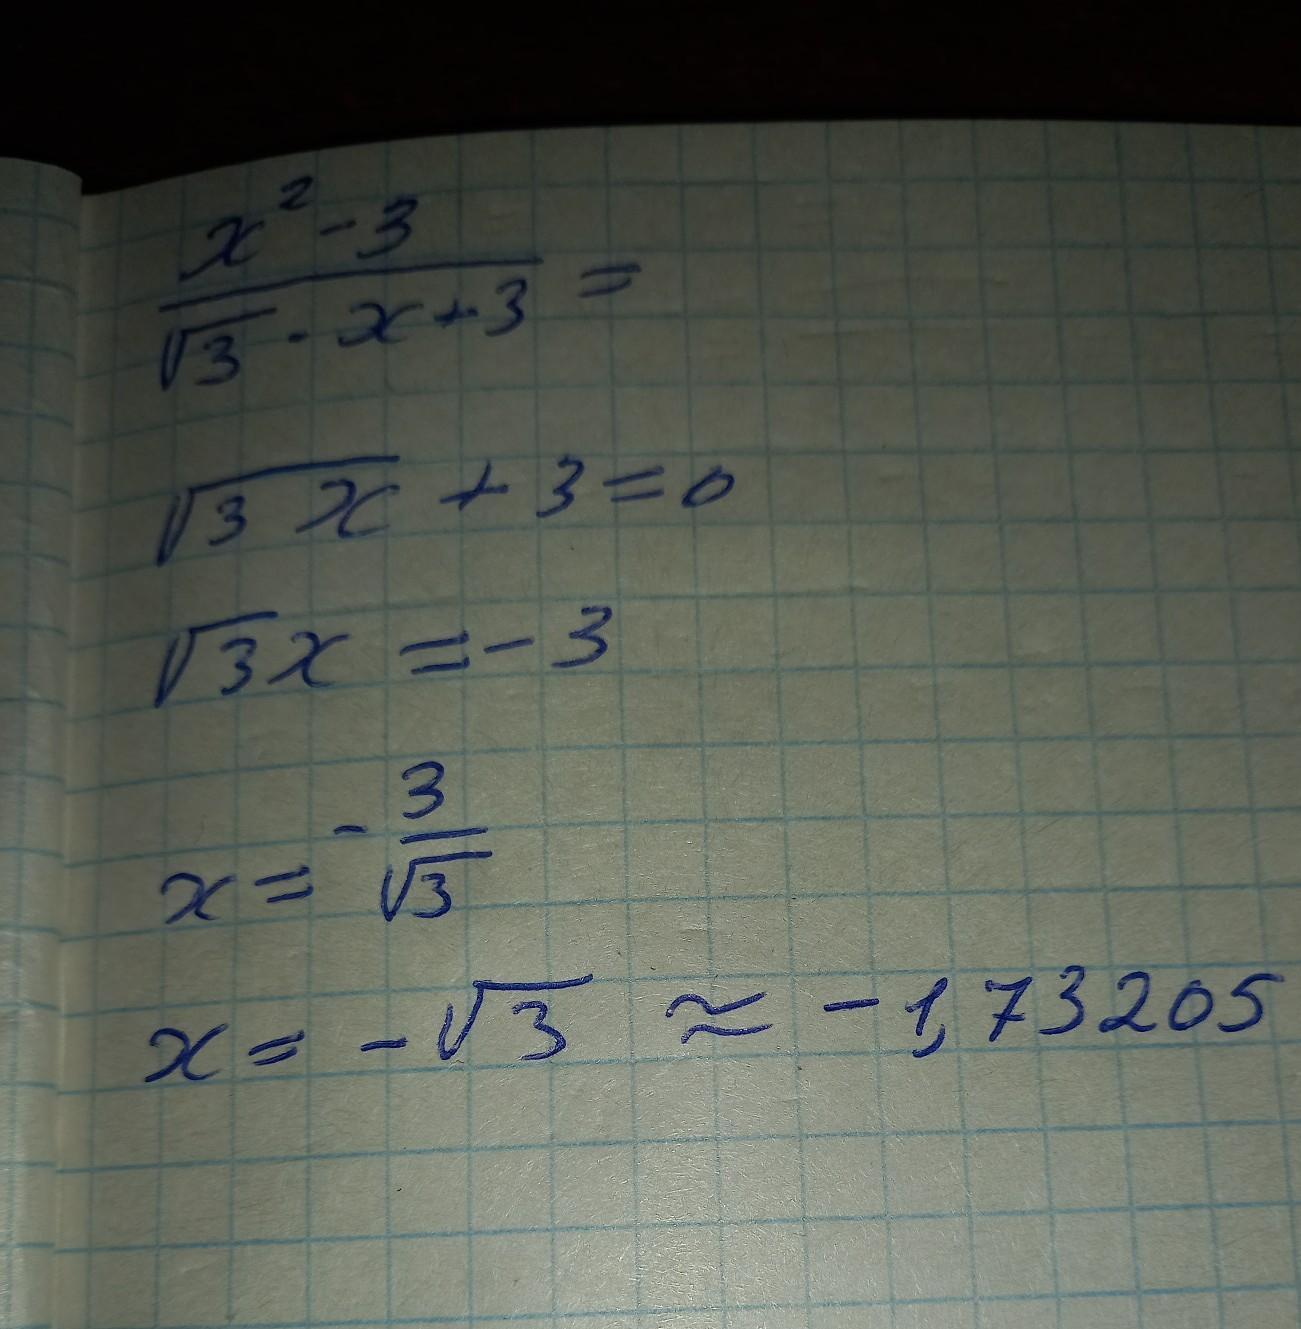 x² - 3
√3 · x + 3 =
√3x + 3 = 0
√3x = - 3
x = - 3/√3
x = - √3 ≈ - 1,73205